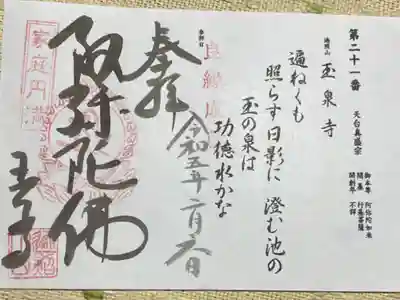 第二十一番
天台真盛宗
玉泉寺
御本尊 阿弥陀如来
開基 行基菩薩
開創年 不詳
遍ねくも
照らす日影に 澄む池の
玉の泉は
功徳水かな
参拝日
良縁成
令和五年二月六日
奉拝
阿弥陀佛
玉泉寺
家庭円満